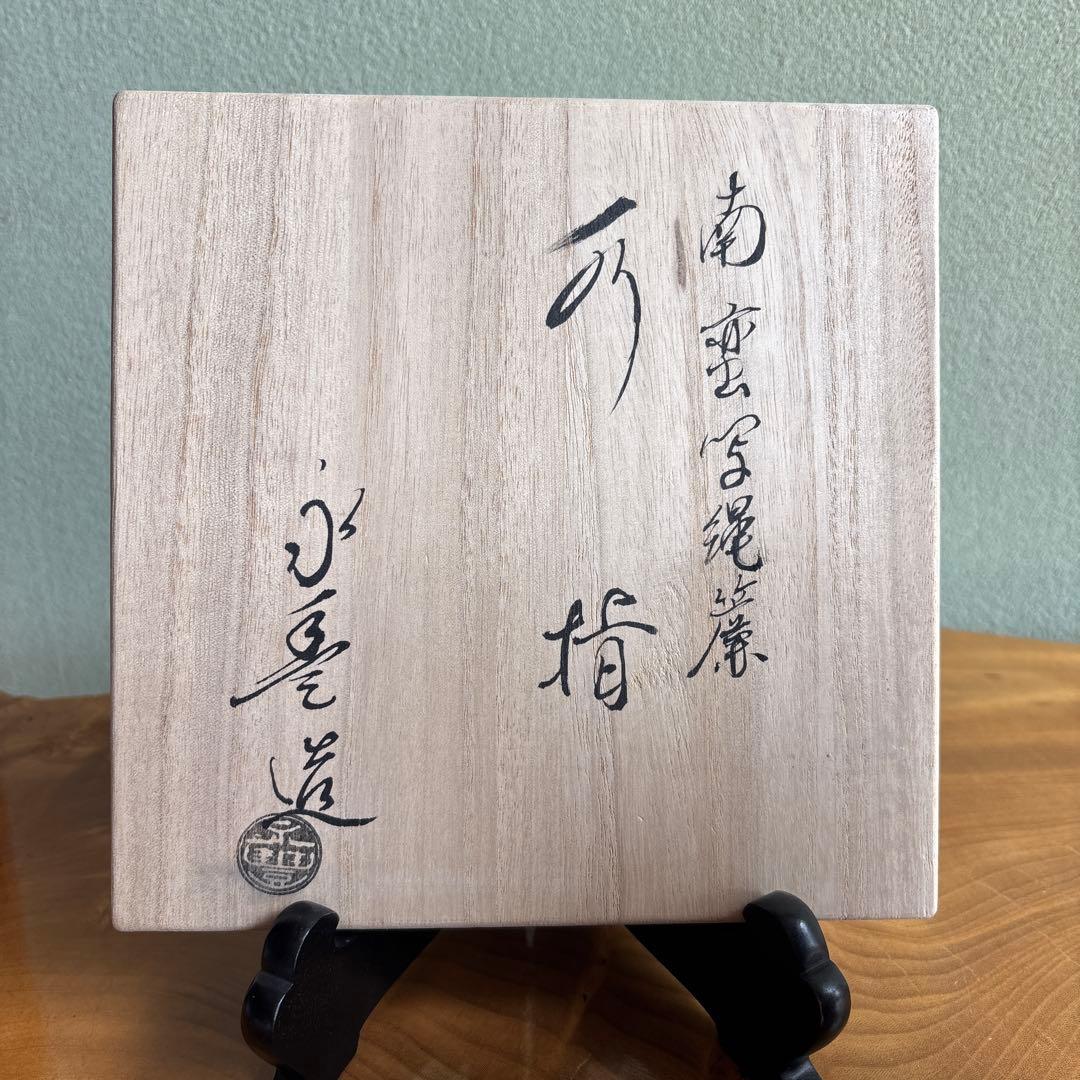 南蛮写縄簾
水指
造